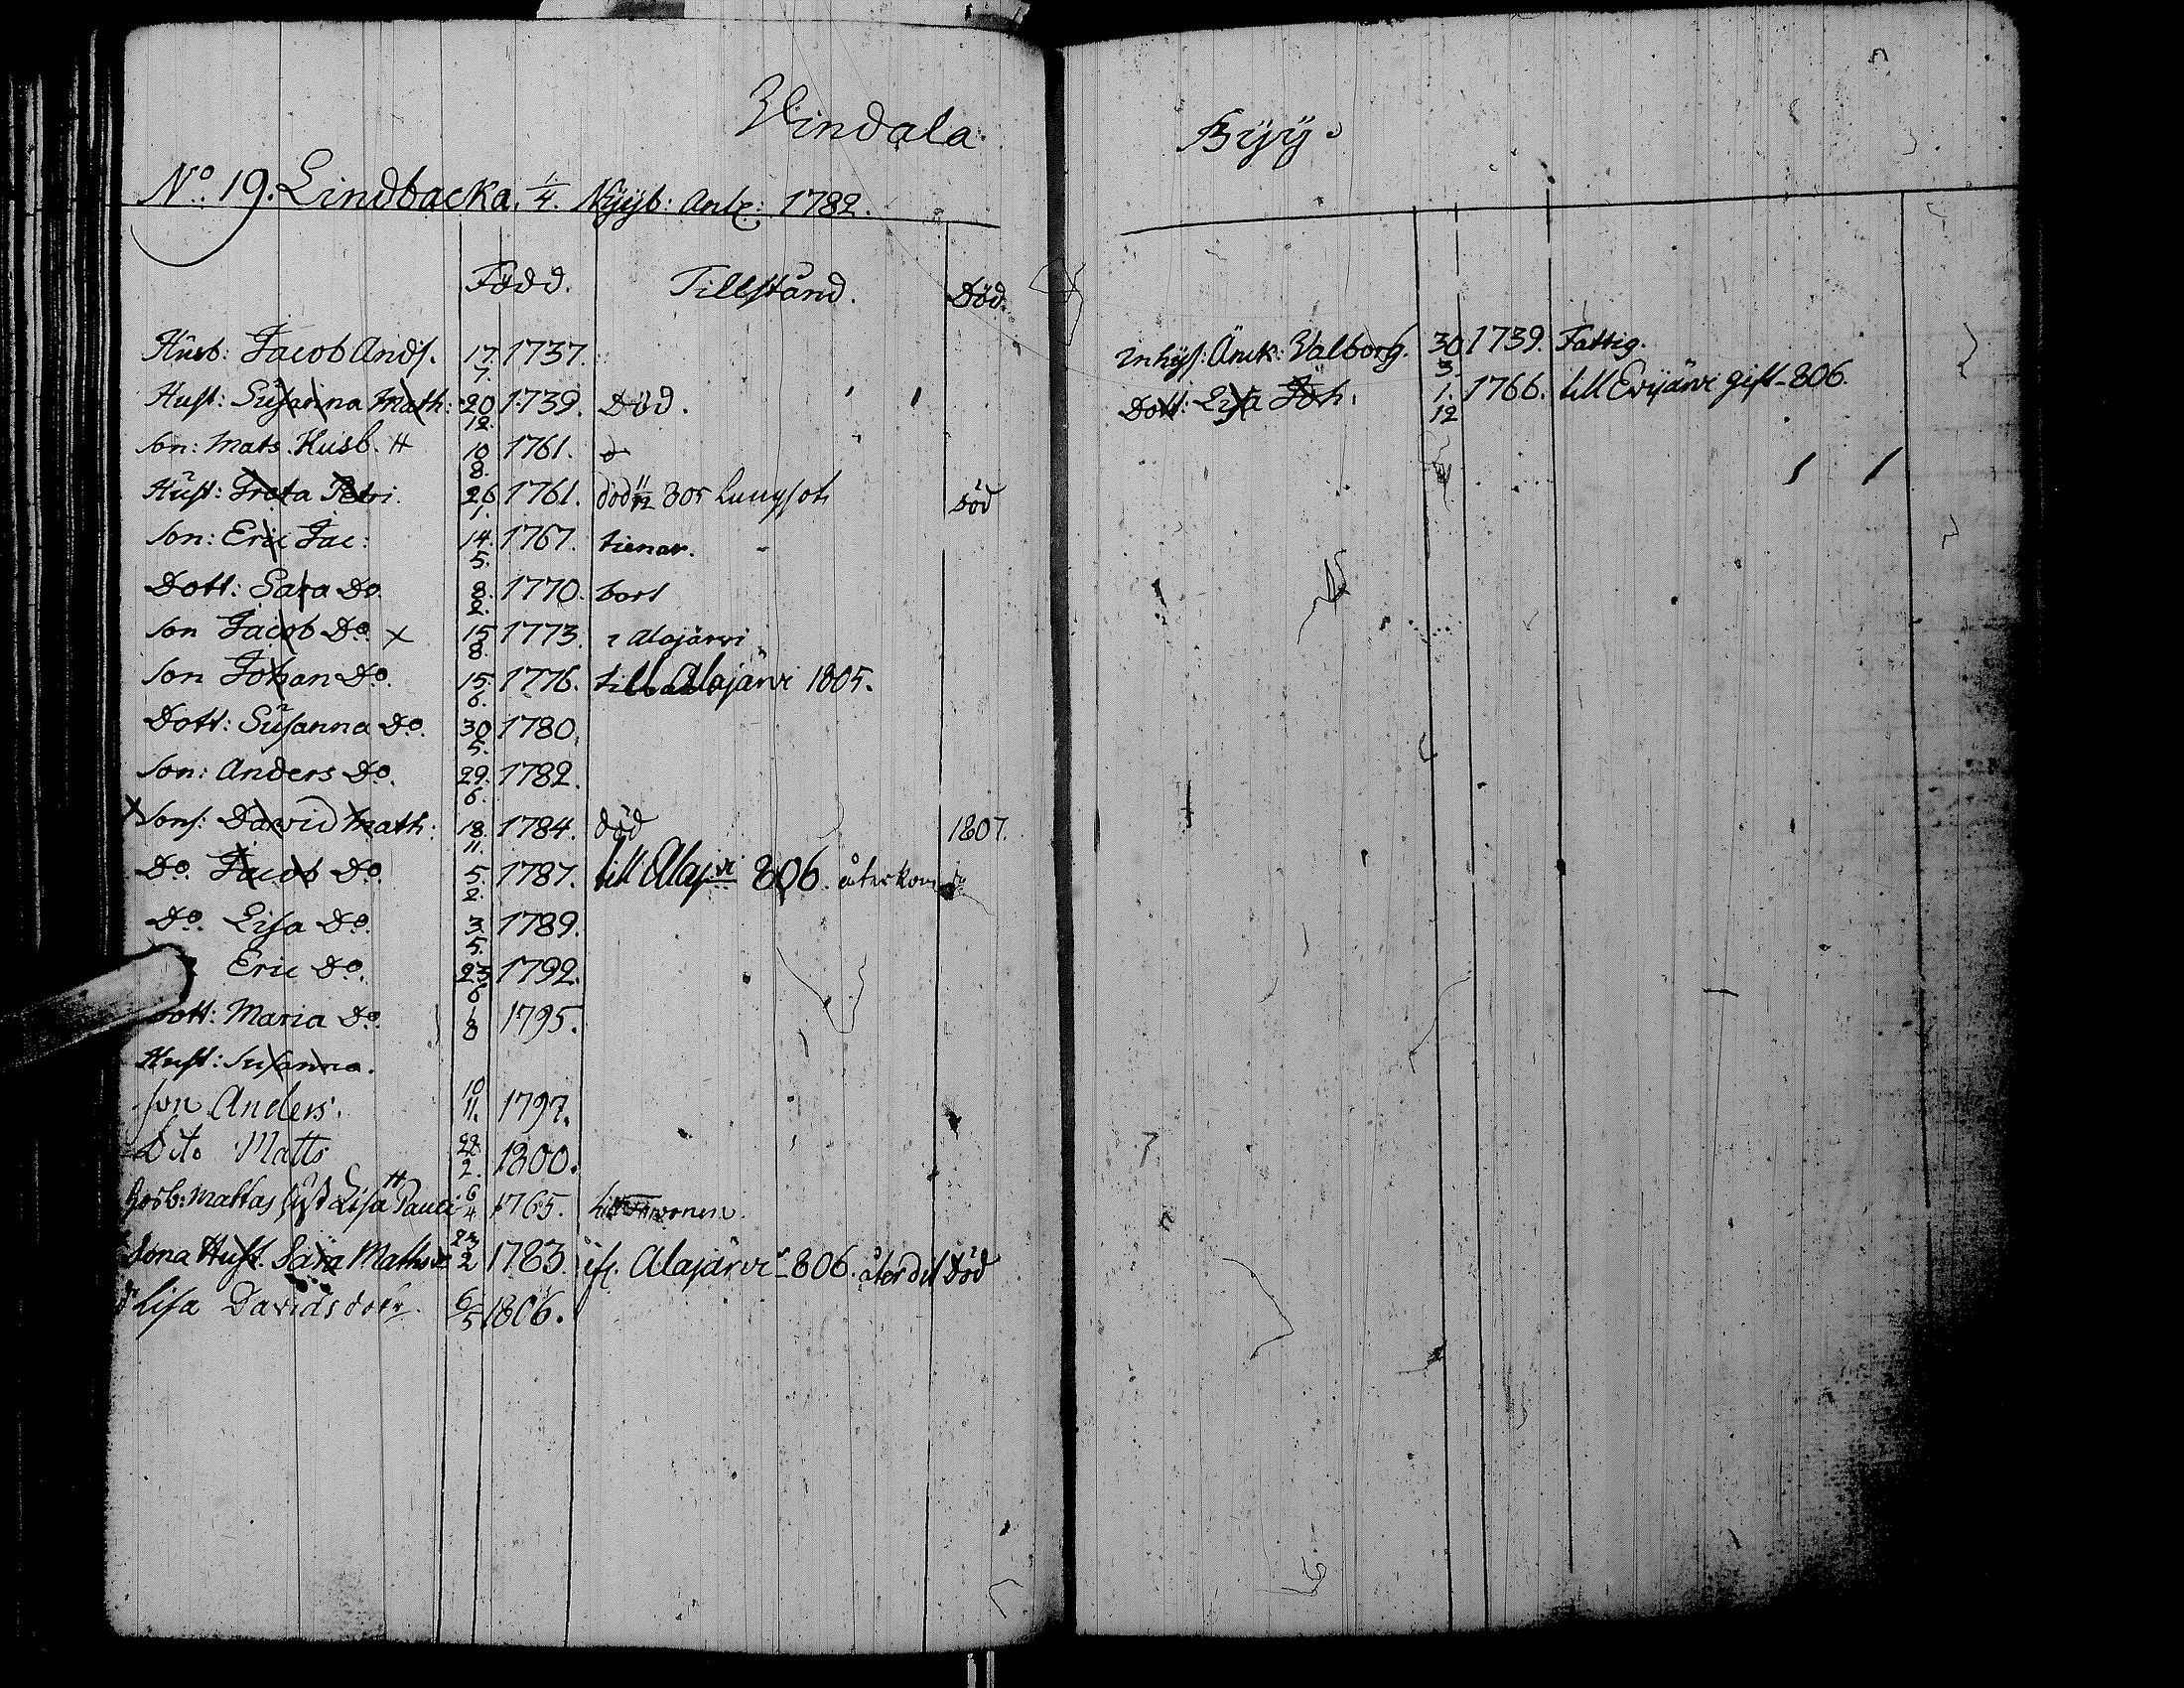 Vindala
Byÿ.
No. 19. Lindbacka. 1/4. Nÿÿb: Anlr: 1782.
Född. Tillstånd. Död.
Husb: Jacob Ands. 17/7. 1737.
Hust: Susanna Math: 20/12. 1739. Död.
Son: Mats. Husb. # 10/8. 1761.
Hust: Greta Petri. 26/1. 1761. död 11/12 805 Lungsot Död
Son: Eric Jac: 14/5. 1767. tienar.
Dott: Sara Do. 8/2. 1770. bort
Son Jacob Do. x 15/8. 1773. i Alajärvi
Son Johan Do. 15/6. 1776. till Alajärvi 1805.
Dott: Susanna Do. 30/5. 1780.
Son: Anders Do. 29/6. 1782.
Sons: David Math: 18/11. 1784. död 1807.
Do. Jacob Do. 5/2. 1787. till Alajvi 806. återkom
Do. Lisa Do. 3/5. 1789.
Eric Do. 23/6 1792.
Dott: Maria Do. 1/8 1795.
Hust: Susanna.
Son Anders. 10/11. 1797.
Dito Matts 22/2. 1800.
Hosb: Mattas Hust Lisa Pauli # 6/4 1765.
Sona Hust. Sara Mathsd 23/2 1783. ifr. Alajärvi 806. åter dit Död
d Lisa Davidsdotr. 6/5 1806.
Inhÿs: Änk: Valborg. 30/3. 1739. Fattig.
Dott: Lisa Joh. 1/12 1766. till Evijärvi gift 806.